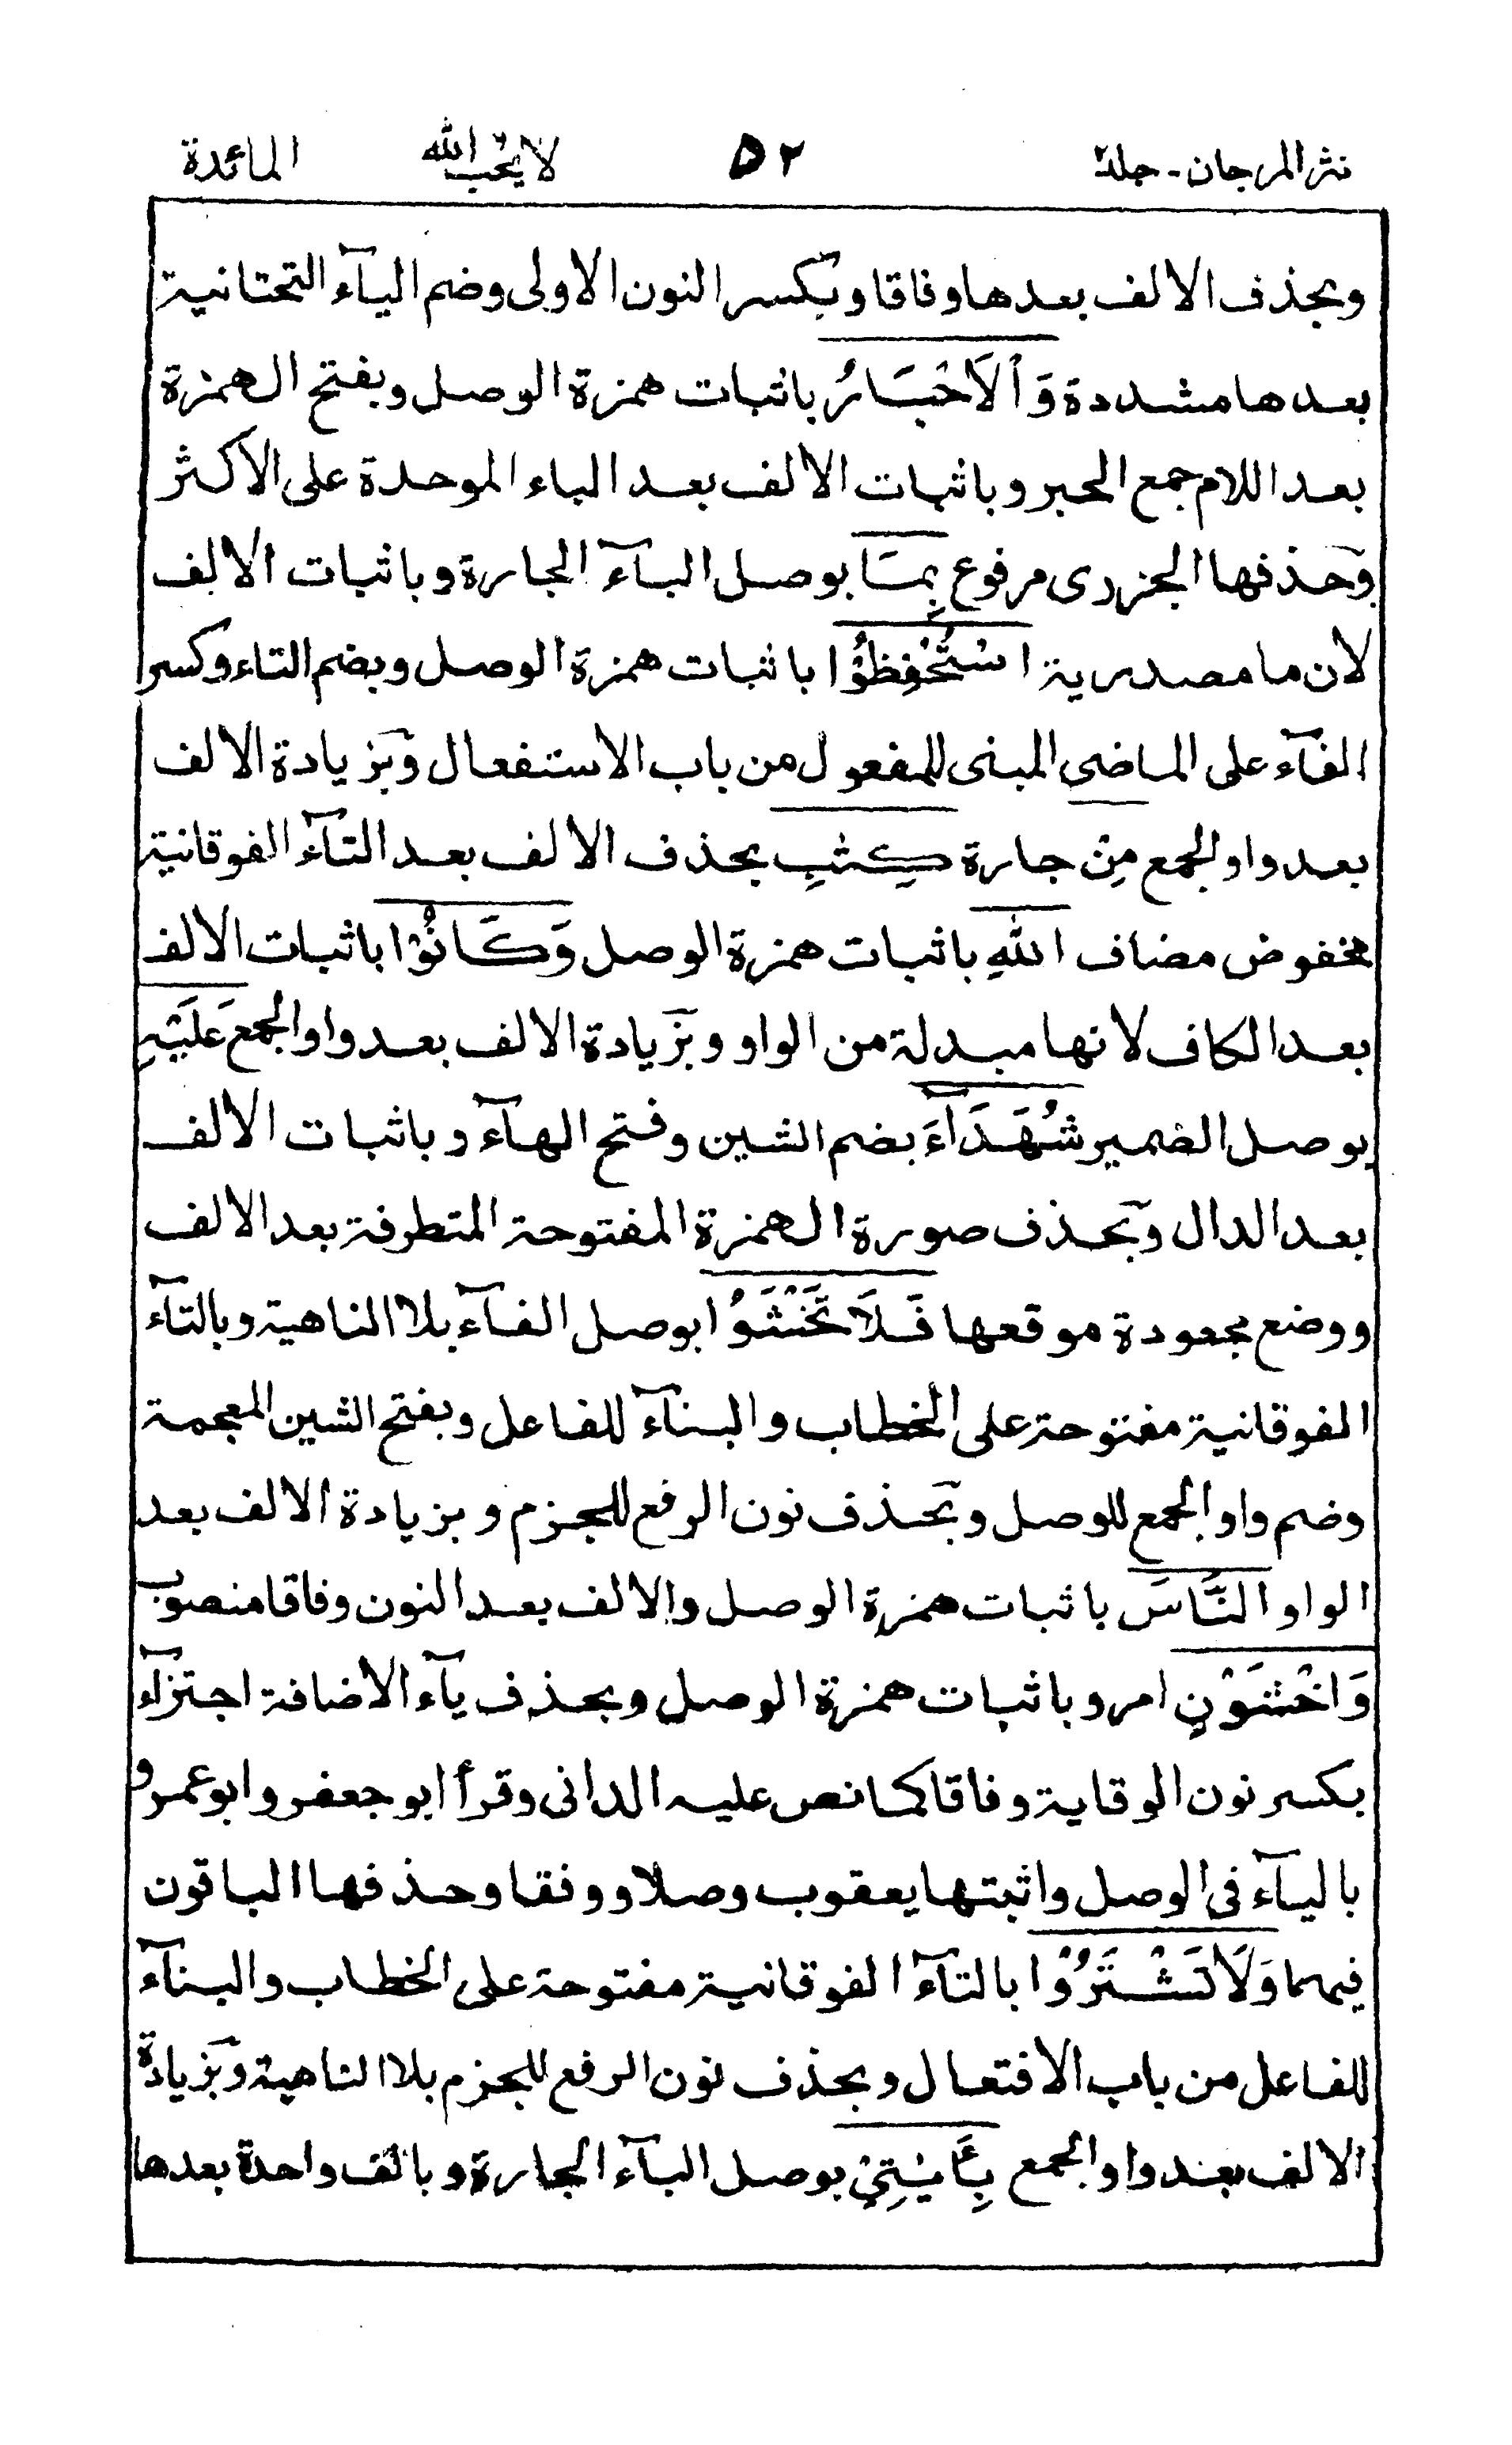 نثر المرجان - جلد ٢ ٥٢ لا يحب الله المائدة
وبحذف الالف بعدها وفاقا وبكسر النون الاولى وضم اليآء التحتانية
بعدها مشددة وَالْاَحْبَارُ باثبات همزة الوصل وبفتح الهمزة
بعد اللام جمع الحبر وباثبات الالف بعد الباء الموحدة على الاكثر
وحذفها الجزرى مرفوع بِمَا بوصل البآء الجارة وباثبات الالف
لان ما مصدرية اسْتُحْفِظُوْا باثبات همزة الوصل وبضم التاء وكسر
الفآء على الماضى المبنى للمفعول من باب الاستفعال وبزيادة الالف
بعد واو الجمع مِنْ جارة كِتٰبِ بحذف الالف بعد التآء الفوقانية
مخفوض مضاف اللّٰهِ باثبات همزة الوصل وَكَانُوْا باثبات الالف
بعد الكاف لانها مبدلة من الواو وبزيادة الالف بعد واو الجمع عَلَيْهِ
بوصل الضمير شُهَدَآءَ بضم الشين وفتح الهآء وباثبات الالف
بعد الدال وبحذف صورة الهمزة المفتوحة المتطرفة بعد الالف
ووضع مجعودة موقعها فَلَا تَخْشَوُا بوصل الفآء بلا الناهية وبالتآء
الفوقانية مفتوحة على الخطاب والبنآء للفاعل وبفتح الشين المعجمة
وضم واو الجمع للوصل وبحذف نون الرفع للجزم وبزيادة الالف بعد
الواو النَّاسَ باثبات همزة الوصل والالف بعد النون وفاقا منصوب
وَاخْشَوْنِ امر وباثبات همزة الوصل وبحذف يآء الاضافة اجتزآء
بكسر نون الوقاية وفاقا كما نص عليه الدانى وقرأ ابو جعفر وابو عمرو
باليآء فى الوصل واثبتها يعقوب وصلا ووقفا وحذفها الباقون
فيهما وَلَا تَشْتَرُوْا بالتآء الفوقانية مفتوحة على الخطاب والبنآء
للفاعل من باب الافتعال وبحذف نون الرفع للجزم بلا الناهية وبزيادة
الالف بعد واو الجمع بِاٰيٰتِيْ بوصل البآء الجارة وبالف واحدة بعدها